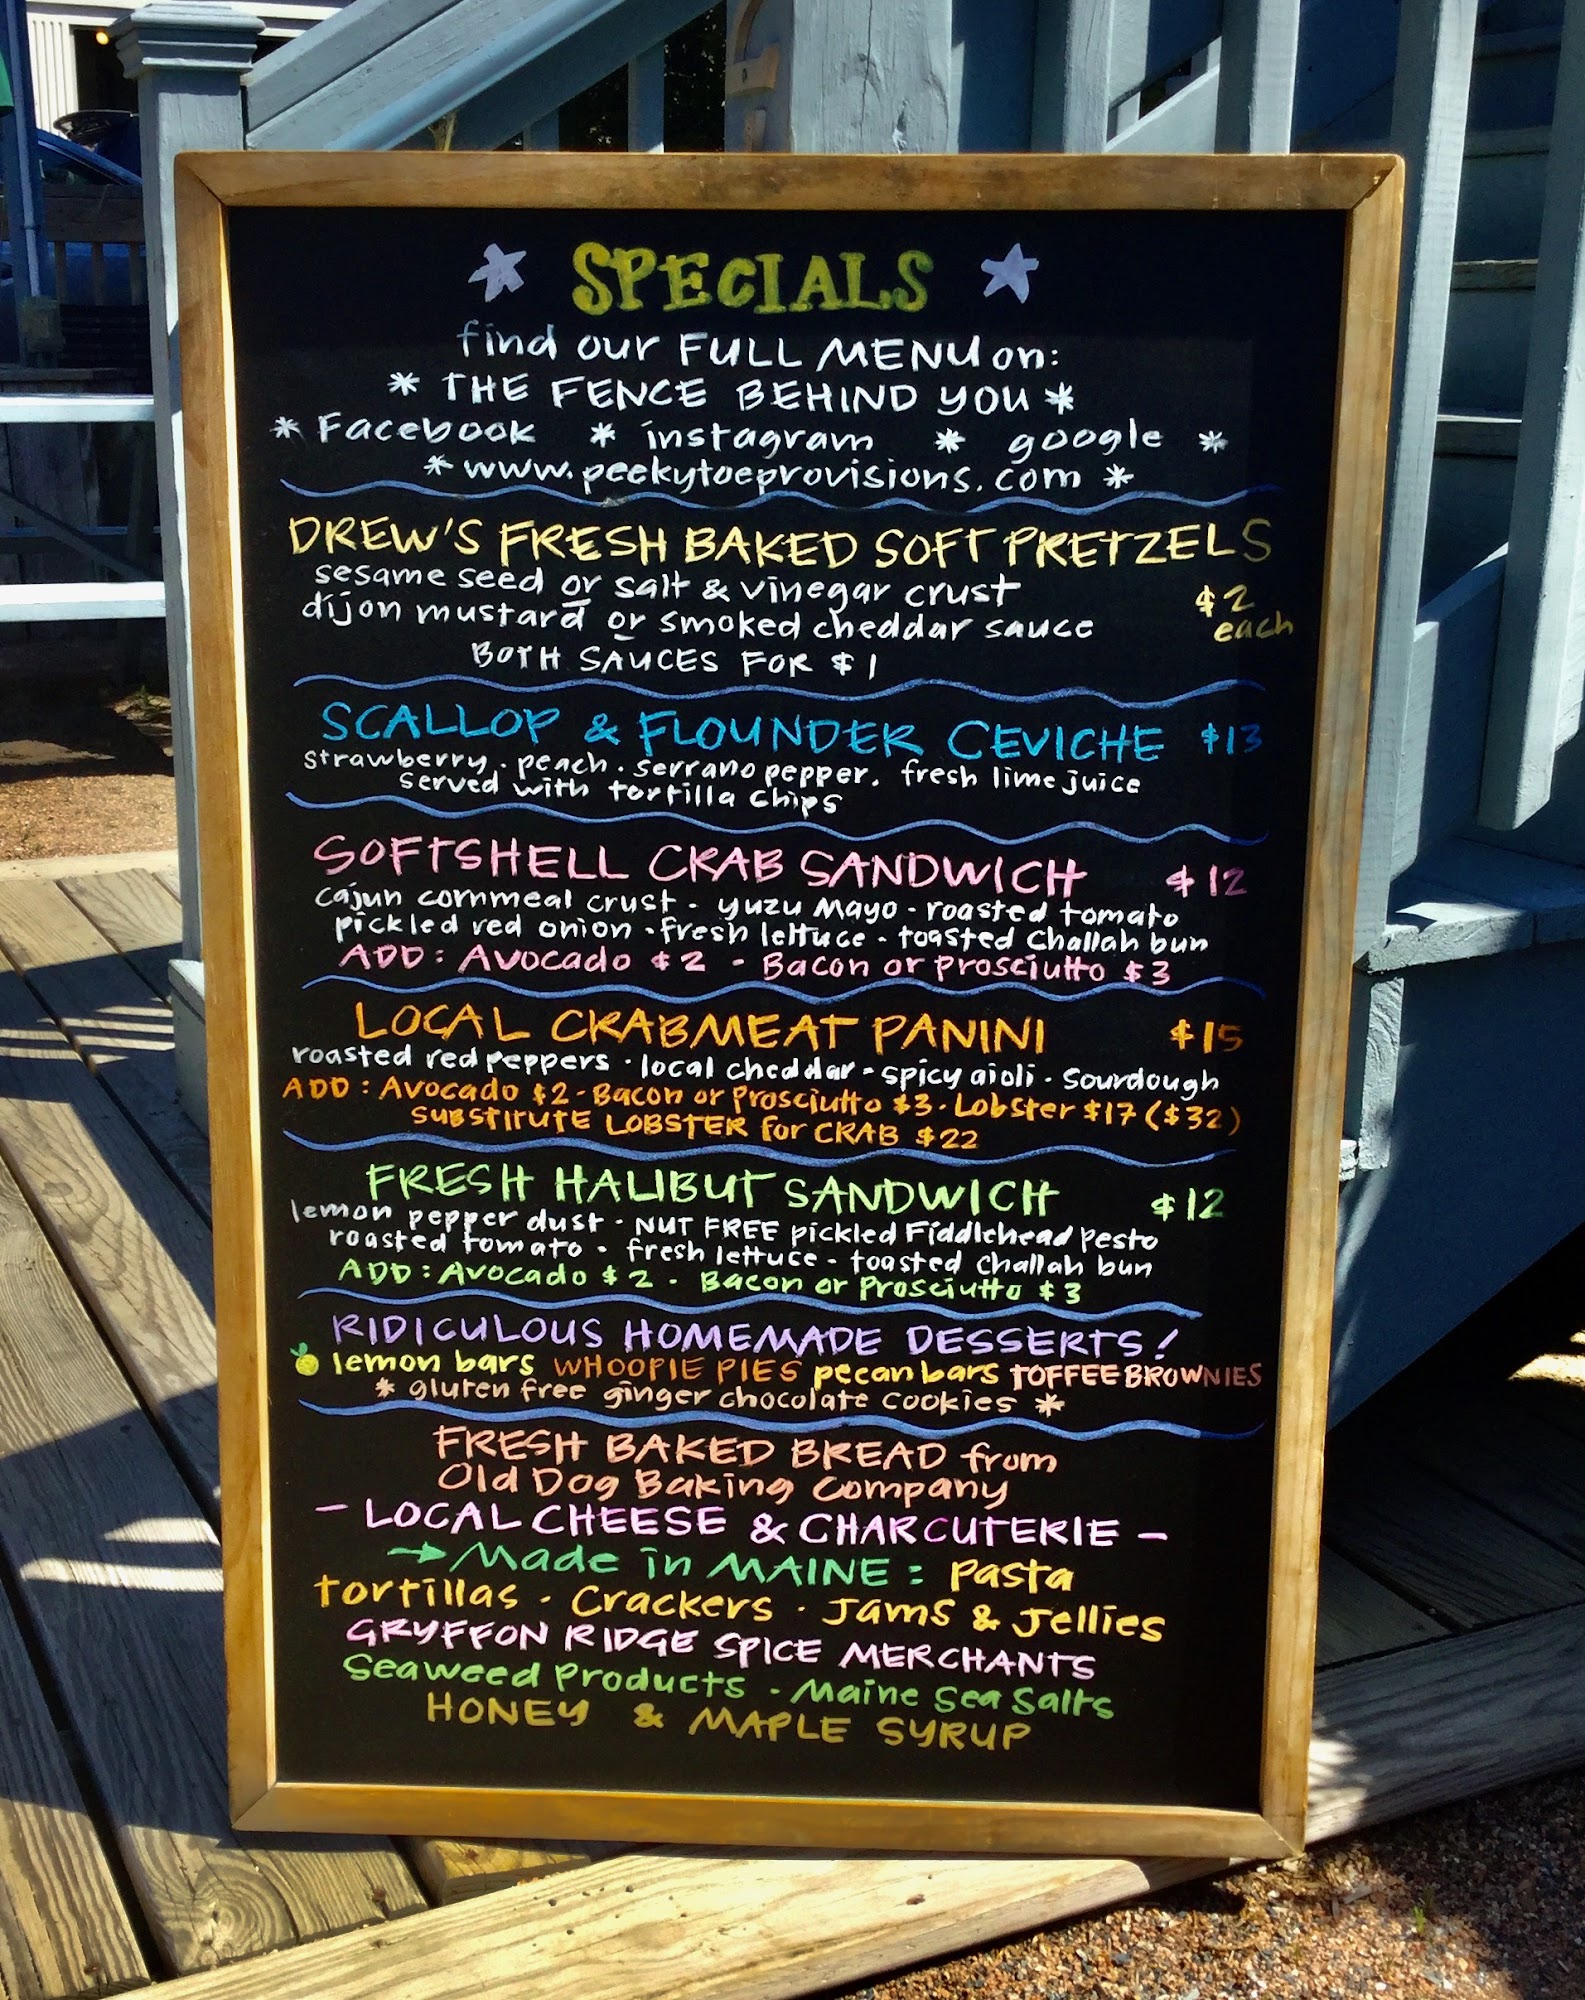 SPECIALS
find our FULL MENU on:
* THE FENCE BEHIND YOU *
* Facebook * instagram * google *
* www.peekytoeprovisions.com *
DREW'S FRESH BAKED SOFT PRETZELS
sesame seed or salt & vinegar crust $2
dijon mustard or smoked cheddar sauce each
BOTH SAUCES FOR $1
SCALLOP & FLOUNDER CEVICHE $13
strawberry · peach · serrano pepper · fresh lime juice
served with tortilla chips
SOFTSHELL CRAB SANDWICH $12
cajun cornmeal crust - yuzu mayo - roasted tomato
pickled red onion - fresh lettuce - toasted challah bun
ADD: Avocado $2 - Bacon or Prosciutto $3
LOCAL CRABMEAT PANINI $15
roasted red peppers · local cheddar - spicy aioli · sourdough
ADD: Avocado $2 - Bacon or Prosciutto $3 · Lobster $17 ($32)
SUBSTITUTE LOBSTER for CRAB $22
FRESH HALIBUT SANDWICH $12
lemon pepper dust · NUT FREE pickled Fiddlehead pesto
roasted tomato - fresh lettuce - toasted challah bun
ADD: Avocado $2 - Bacon or Prosciutto $3
RIDICULOUS HOMEMADE DESSERTS!
lemon bars WHOOPIE PIES pecan bars TOFFEE BROWNIES
* gluten free ginger chocolate cookies *
FRESH BAKED BREAD from
Old Dog Baking Company
- LOCAL CHEESE & CHARCUTERIE -
→ Made in MAINE: Pasta
Tortillas · Crackers · Jams & Jellies
GRYFFON RIDGE SPICE MERCHANTS
Seaweed Products - Maine Sea Salts
HONEY & MAPLE SYRUP